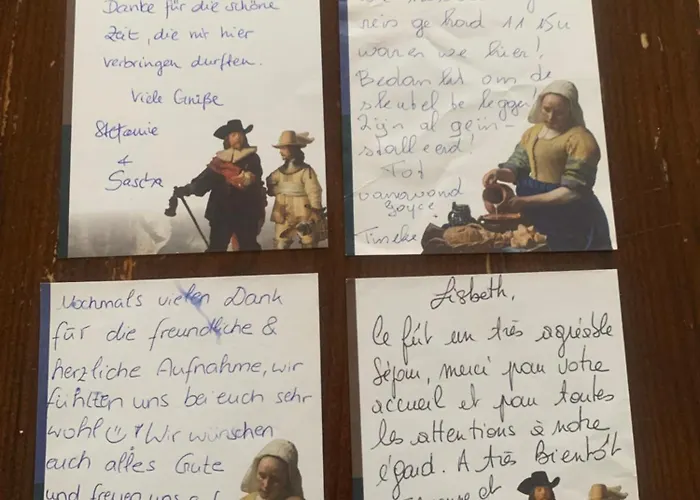 Danke für die schöne
Zeit, die wir hier
verbringen durften.
Viele Grüße
Stefanie
&
Sascha
reis gehad 11 15u
waren we hier!
Bedankt om de
sleutel te leggen!
Zijn al geïn-
stalleerd!
Tot
vanavond
Joyce
Tineke
Nochmals vielen Dank
für die freundliche &
herzliche Aufnahme, wir
fühlten uns bei euch sehr
wohl Wir wünschen
euch alles Gute
und freuen uns
Lisbeth,
Ce fût un très agréable
Séjour, merci pour votre
accueil et pour toutes
les attentions à notre
égard. A très Bientôt
et